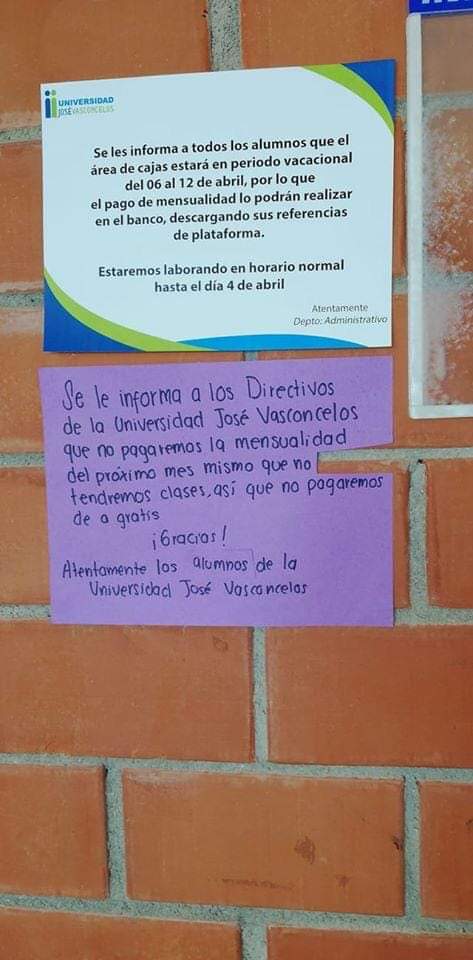 UNIVERSIDAD
JOSÉ VASCONCELOS
Se les informa a todos los alumnos que el
área de cajas estará en periodo vacacional
del 06 al 12 de abril, por lo que
el pago de mensualidad lo podrán realizar
en el banco, descargando sus referencias
de plataforma.
Estaremos laborando en horario normal
hasta el día 4 de abril
Atentamente
Depto: Administrativo
Se le informa a los Directivos
de la Universidad José Vasconcelos
que no pagaremos la mensualidad
del próximo mes mismo que no
tendremos clases, así que no pagaremos
de a gratis
¡Gracias!
Atentamente los alumnos de la
Universidad José Vasconcelos